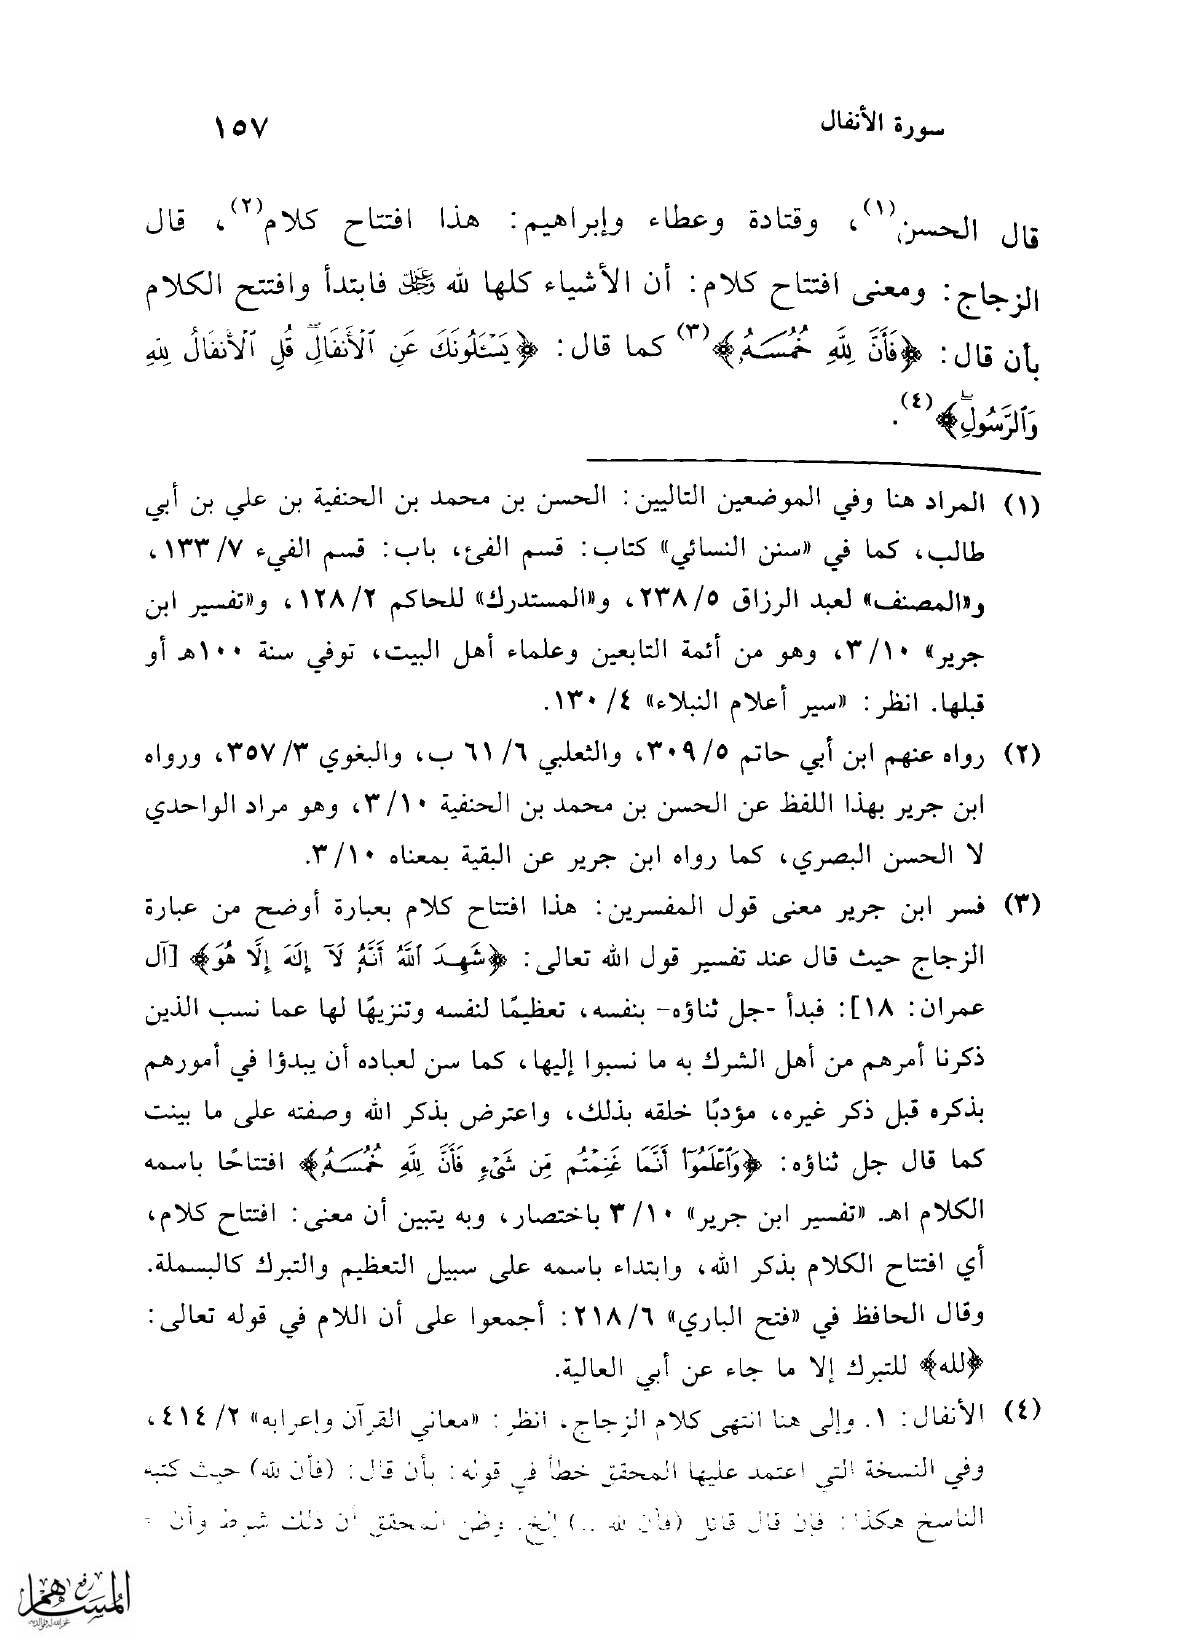 سورة الأنفال ١٥٧
قال الحسن(١)، وقتادة وعطاء وإبراهيم: هذا افتتاح كلام(٢)، قال
الزجاج: ومعنى افتتاح كلام: أن الأشياء كلها لله ﷿ فابتدأ وافتتح الكلام
بأن قال: ﴿فَأَنَّ لِلَّهِ خُمُسَهُۥ﴾(٣) كما قال: ﴿يَسْـَٔلُونَكَ عَنِ ٱلْأَنفَالِۖ قُلِ ٱلْأَنفَالُ لِلَّهِ
وَٱلرَّسُولِۖ﴾(٤).
(١) المراد هنا وفي الموضعين التاليين: الحسن بن محمد بن الحنفية بن علي بن أبي
طالب، كما في «سنن النسائي» كتاب: قسم الفئ، باب: قسم الفيء ٧/ ١٣٣،
و«المصنف» لعبد الرزاق ٥/ ٢٣٨، و«المستدرك» للحاكم ٢/ ١٢٨، و«تفسير ابن
جرير» ١٠/ ٣، وهو من أئمة التابعين وعلماء أهل البيت، توفي سنة ١٠٠هـ أو
قبلها. انظر: «سير أعلام النبلاء» ٤/ ١٣٠.
(٢) رواه عنهم ابن أبي حاتم ٥/ ٣٠٩، والثعلبي ٦/ ٦١ ب، والبغوي ٣/ ٣٥٧، ورواه
ابن جرير بهذا اللفظ عن الحسن بن محمد بن الحنفية ١٠/ ٣، وهو مراد الواحدي
لا الحسن البصري، كما رواه ابن جرير عن البقية بمعناه ١٠/ ٣.
(٣) فسر ابن جرير معنى قول المفسرين: هذا افتتاح كلام بعبارة أوضح من عبارة
الزجاج حيث قال عند تفسير قول الله تعالى: ﴿شَهِدَ ٱللَّهُ أَنَّهُۥ لَآ إِلَٰهَ إِلَّا هُوَ﴾ [آل
عمران: ١٨]: فبدأ -جل ثناؤه- بنفسه، تعظيمًا لنفسه وتنزيهًا لها عما نسب الذين
ذكرنا أمرهم من أهل الشرك به ما نسبوا إليها، كما سن لعباده أن يبدؤا في أمورهم
بذكره قبل ذكر غيره، مؤدبًا خلقه بذلك، واعترض بذكر الله وصفته على ما بينت
كما قال جل ثناؤه: ﴿وَٱعْلَمُوٓا۟ أَنَّمَا غَنِمْتُم مِّن شَىْءٍ فَأَنَّ لِلَّهِ خُمُسَهُۥ﴾ افتتاحًا باسمه
الكلام اهـ. «تفسير ابن جرير» ١٠/ ٣ باختصار، وبه يتبين أن معنى: افتتاح كلام،
أي افتتاح الكلام بذكر الله، وابتداء باسمه على سبيل التعظيم والتبرك كالبسملة.
وقال الحافظ في «فتح الباري» ٦/ ٢١٨: أجمعوا على أن اللام في قوله تعالى:
﴿لله﴾ للتبرك إلا ما جاء عن أبي العالية.
(٤) الأنفال: ١. وإلى هنا انتهى كلام الزجاج، انظر: «معاني القرآن وإعرابه» ٢/ ٤١٤،
وفي النسخة التي اعتمد عليها المحقق خطأ في قوله: بأن قال: (فأن لله) حيث كتبه
الناسخ هكذا: فإن قال قائل (فأن لله ..) إلخ. وظن المحقق أن ذلك شرط وأن =
رفع المساهم